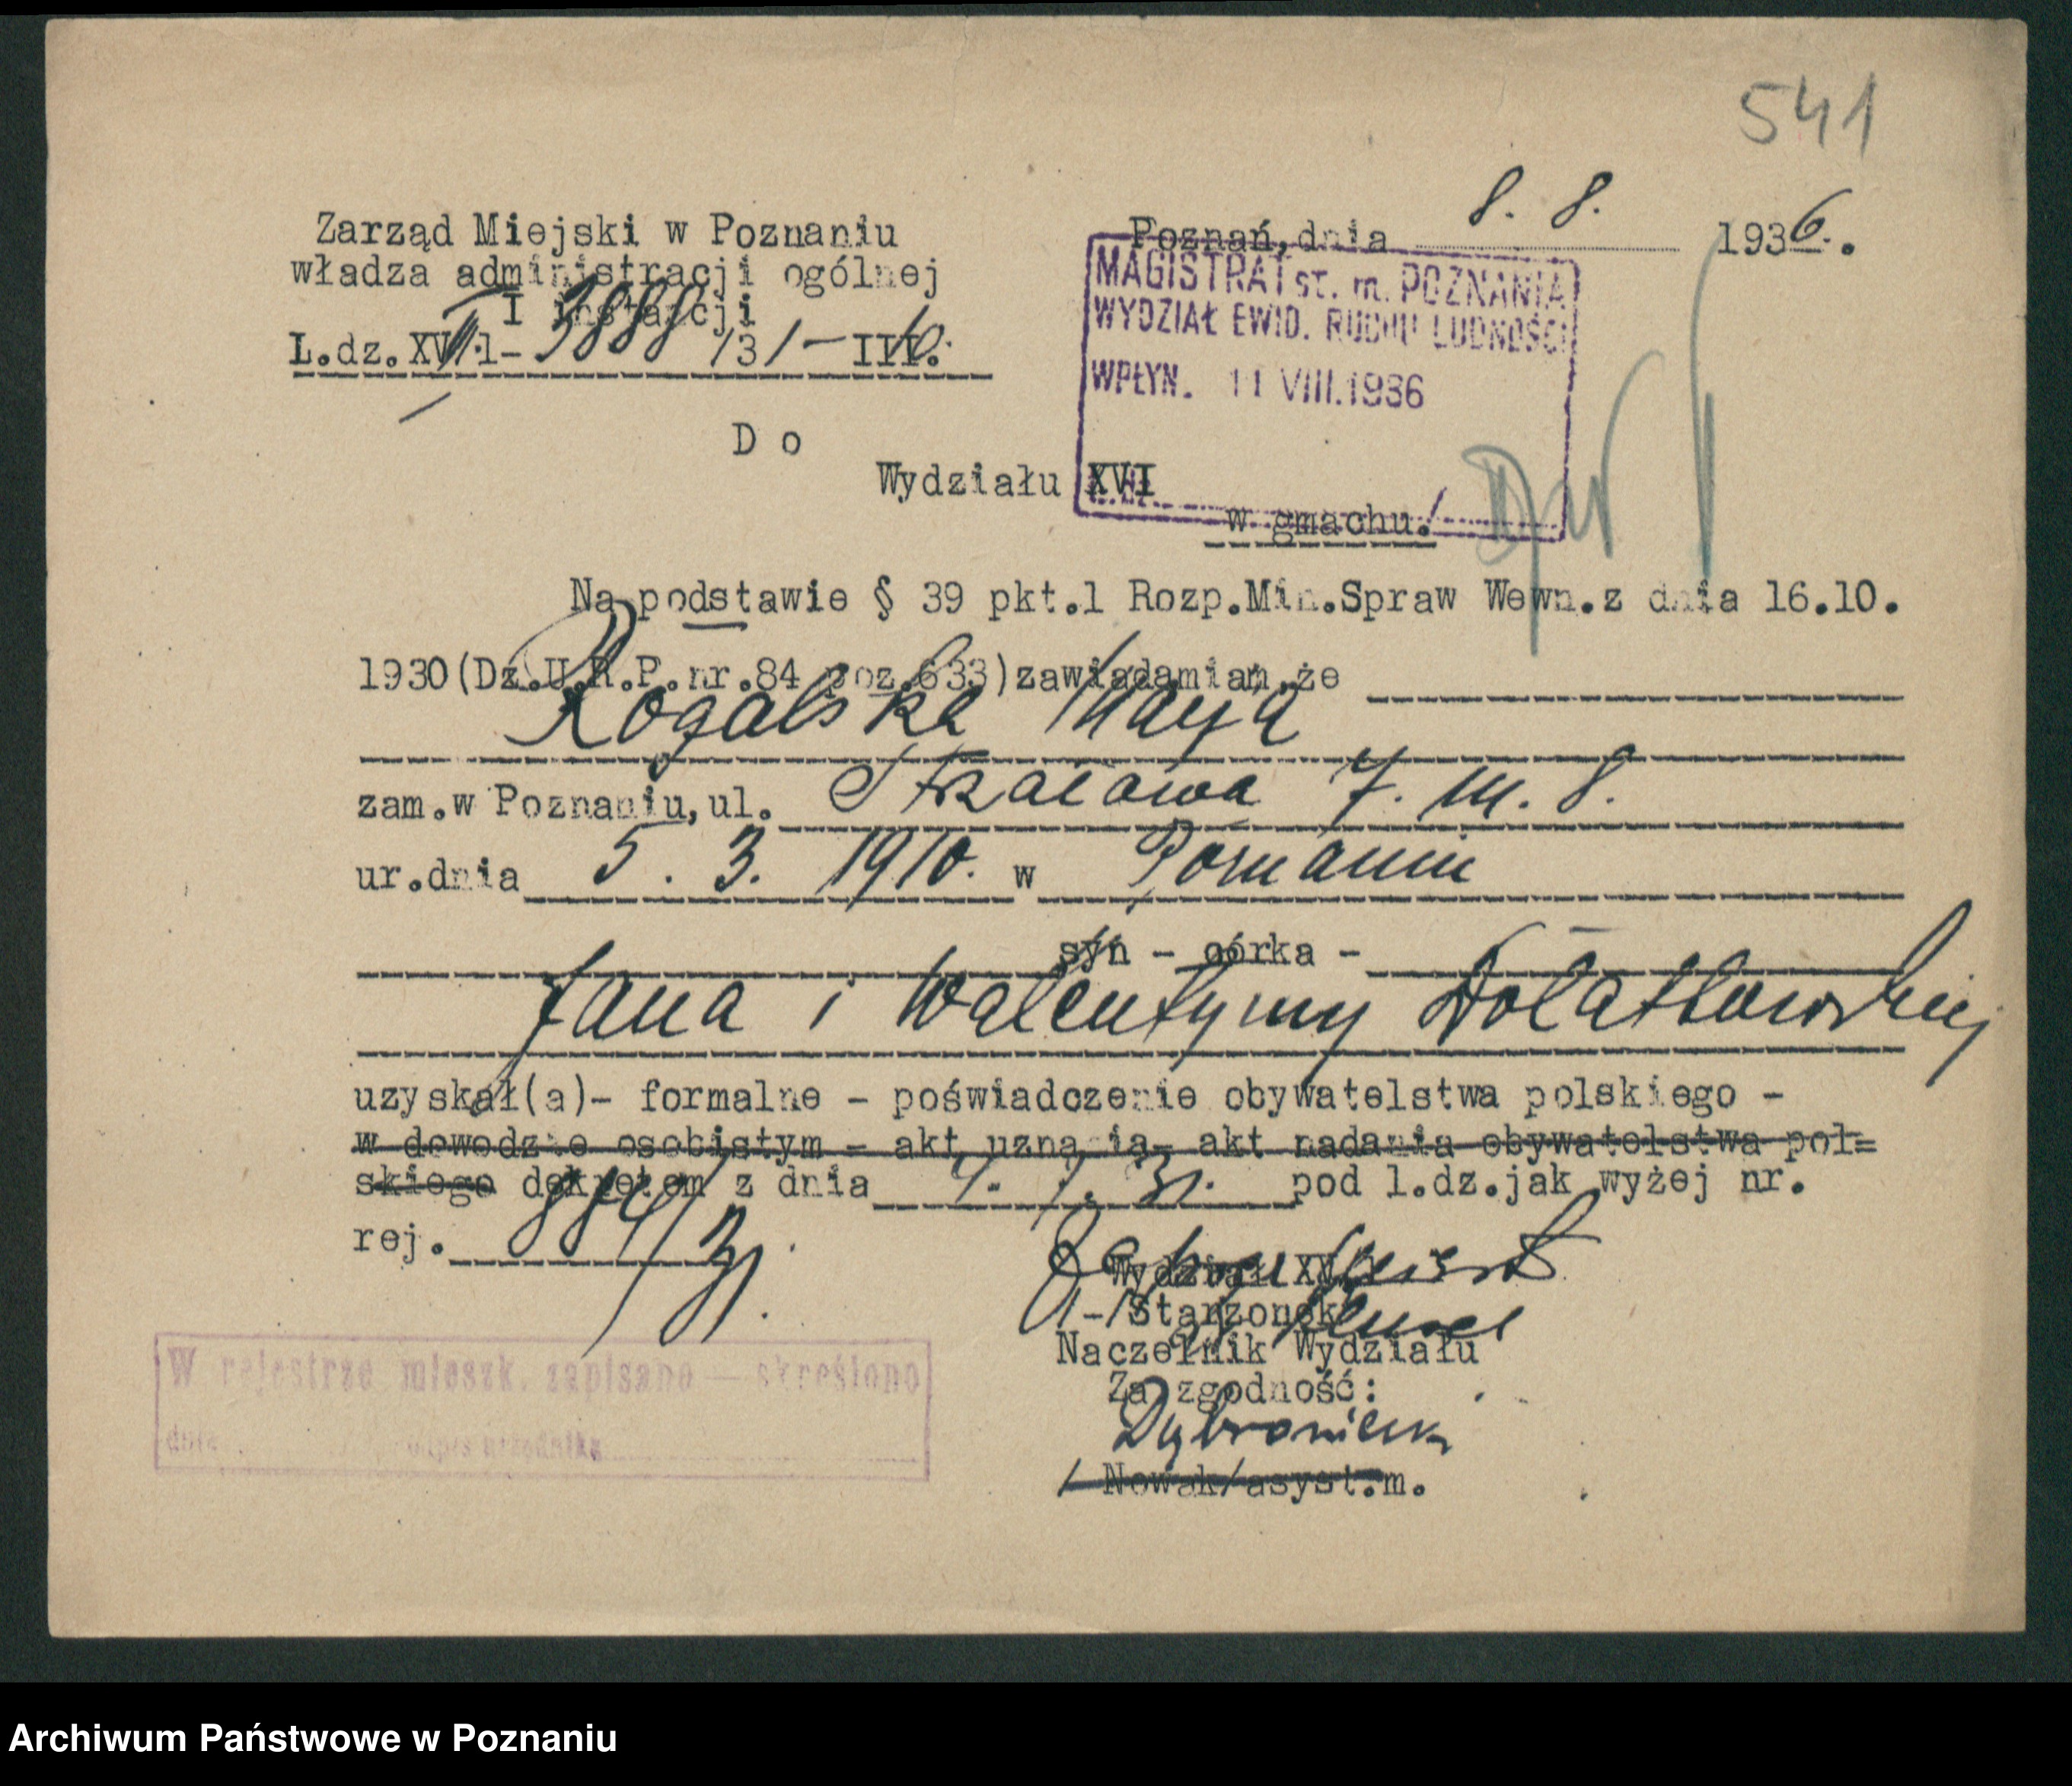 541
Zarząd Miejski w Poznaniu
władza administracji ogólnej
I instancji
L.dz.XVI/1- 3888 /31-III.
Poznań, dnia 8. 8. 1936.
MAGISTRAT st. m. POZNANIA
WYDZIAŁ EWID. RUCHU LUDNOŚCI
WPŁYN. 11 VIII.1936
D o
Wydziału XVI
w gmachu.
Na podstawie § 39 pkt.1 Rozp.Min.Spraw Wewn.z dnia 16.10.
1930(Dz.U.R.P.nr.84 poz.633)zawiadamiam,że
Rogalska Marja
zam.w Poznaniu,ul. Składowa 7. m. 8.
ur.dnia 5. 3. 1910. w Poznaniu
syn - córka -
Jana i Walentyny Dolatkowskiej
uzyskał(a)- formalne - poświadczenie obywatelstwa polskiego -
w dowodzie osobistym - akt uznania- akt nadania obywatelstwa pol=
skiego dekretem z dnia 31. pod l.dz.jak wyżej nr.
rej. 884/31.
Wydział XVI
-/Starzonek
Naczelnik Wydziału
Za zgodność:
/ Nowak/asyst.m.
W rejestrze mieszk. zapisano — skreślono
dnia podpis urzędnika
Archiwum Państwowe w Poznaniu